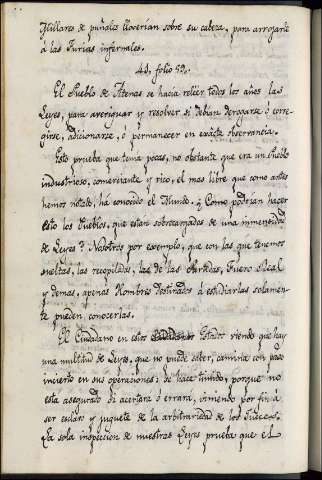 Millares de puñales lloverian sobre su cabeza, para arrojarle
á las Furias infernales.
41. folio 52.
El Pueblo de Atenas se hacia releer todos los años las
Leyes, para averiguar y resolver si debian derogarse ó corre
girse, adicionarse, ó permanecer en exâcta observancia.
Esto prueba que tenia pocas, no obstante que era un Pueblo
industrioso, comerciante y rico, el mas libre que como antes
hemos notado, ha conocido el Mundo. ¿Como podrian hacer
esto los Pueblos, que estan sobrecargados de una inmensidad
de Leyes? Nosotros por exemplo, que con las que tenemos
sueltas, las recopiladas, las de las Partidas, Fuero Real
y demas, apenas Hombres destinados á estudiarlas solamen-
te pueden conocerlas.
El Ciudadano en estos Estados viendo que hay
una multitud de Leyes, que no puede saber, camina con paso
incierto en sus operaciones; se hace timido, porque no
esta asegurado si acertara ó errara, viniendo por fin á
ser esclavo y juguete de la arbitrariedad de los Jueces.
La sola inspeccion de nuestras Leyes prueba que el